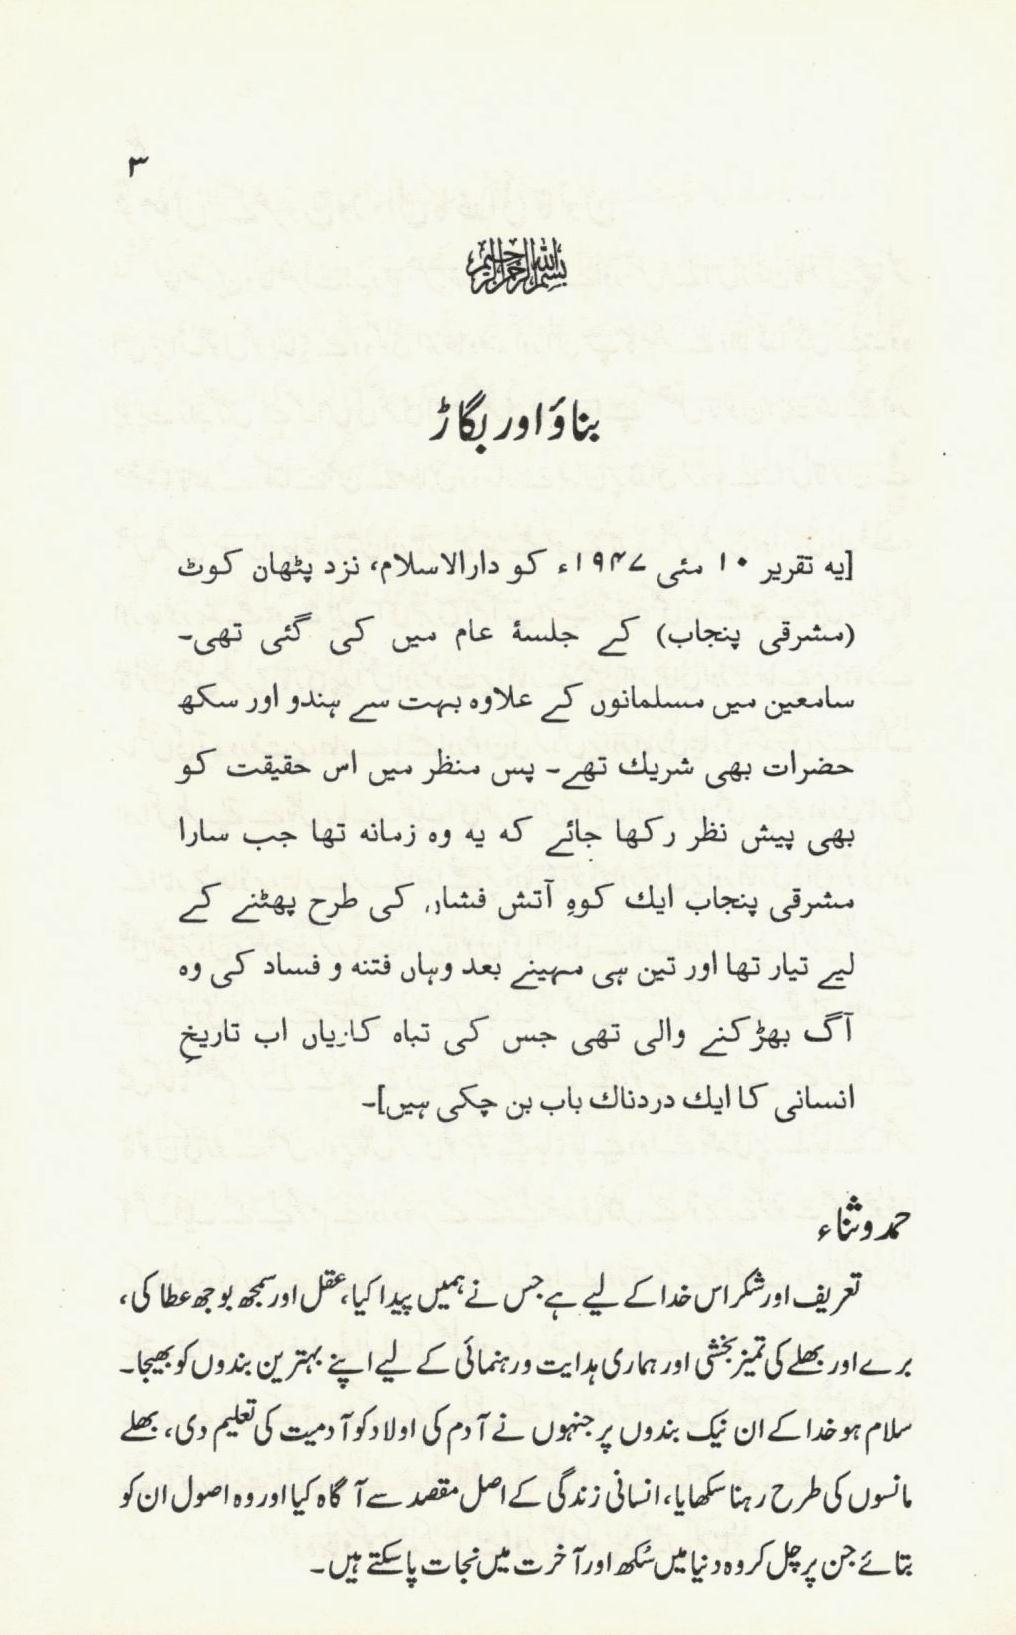 ۳
بسم اللہ الرحمن الرحیم
بناؤ اور بگاڑ
[یہ تقریر ۱۰ مئی ۱۹۴۷ء کو دارالاسلام، نزد پٹھان کوٹ
(مشرقی پنجاب) کے جلسۂ عام میں کی گئی تھی۔
سامعین میں مسلمانوں کے علاوہ بہت سے ہندو اور سکھ
حضرات بھی شریك تھے۔ پس منظر میں اس حقیقت کو
بھی پیش نظر رکھا جائے کہ یہ وہ زمانہ تھا جب سارا
مشرقی پنجاب ایك کوہِ آتش فشاں کی طرح پھٹنے کے
لیے تیار تھا اور تین ہی مہینے بعد وہاں فتنہ و فساد کی وہ
آگ بھڑکنے والی تھی جس کی تباہ کاریاں اب تاریخِ
انسانی کا ایك دردناك باب بن چکی ہیں]۔
حمد و ثناء
تعریف اور شکر اس خدا کے لیے ہے جس نے ہمیں پیدا کیا، عقل اور سمجھ بوجھ عطا کی،
برے اور بھلے کی تمیز بخشی اور ہماری ہدایت و رہنمائی کے لیے اپنے بہترین بندوں کو بھیجا۔
سلام ہو خدا کے ان نیک بندوں پر جنہوں نے آدم کی اولاد کو آدمیت کی تعلیم دی، بھلے
مانسوں کی طرح رہنا سکھایا، انسانی زندگی کے اصل مقصد سے آگاہ کیا اور وہ اصول ان کو
بتائے جن پر چل کر وہ دنیا میں سُکھ اور آخرت میں نجات پا سکتے ہیں۔